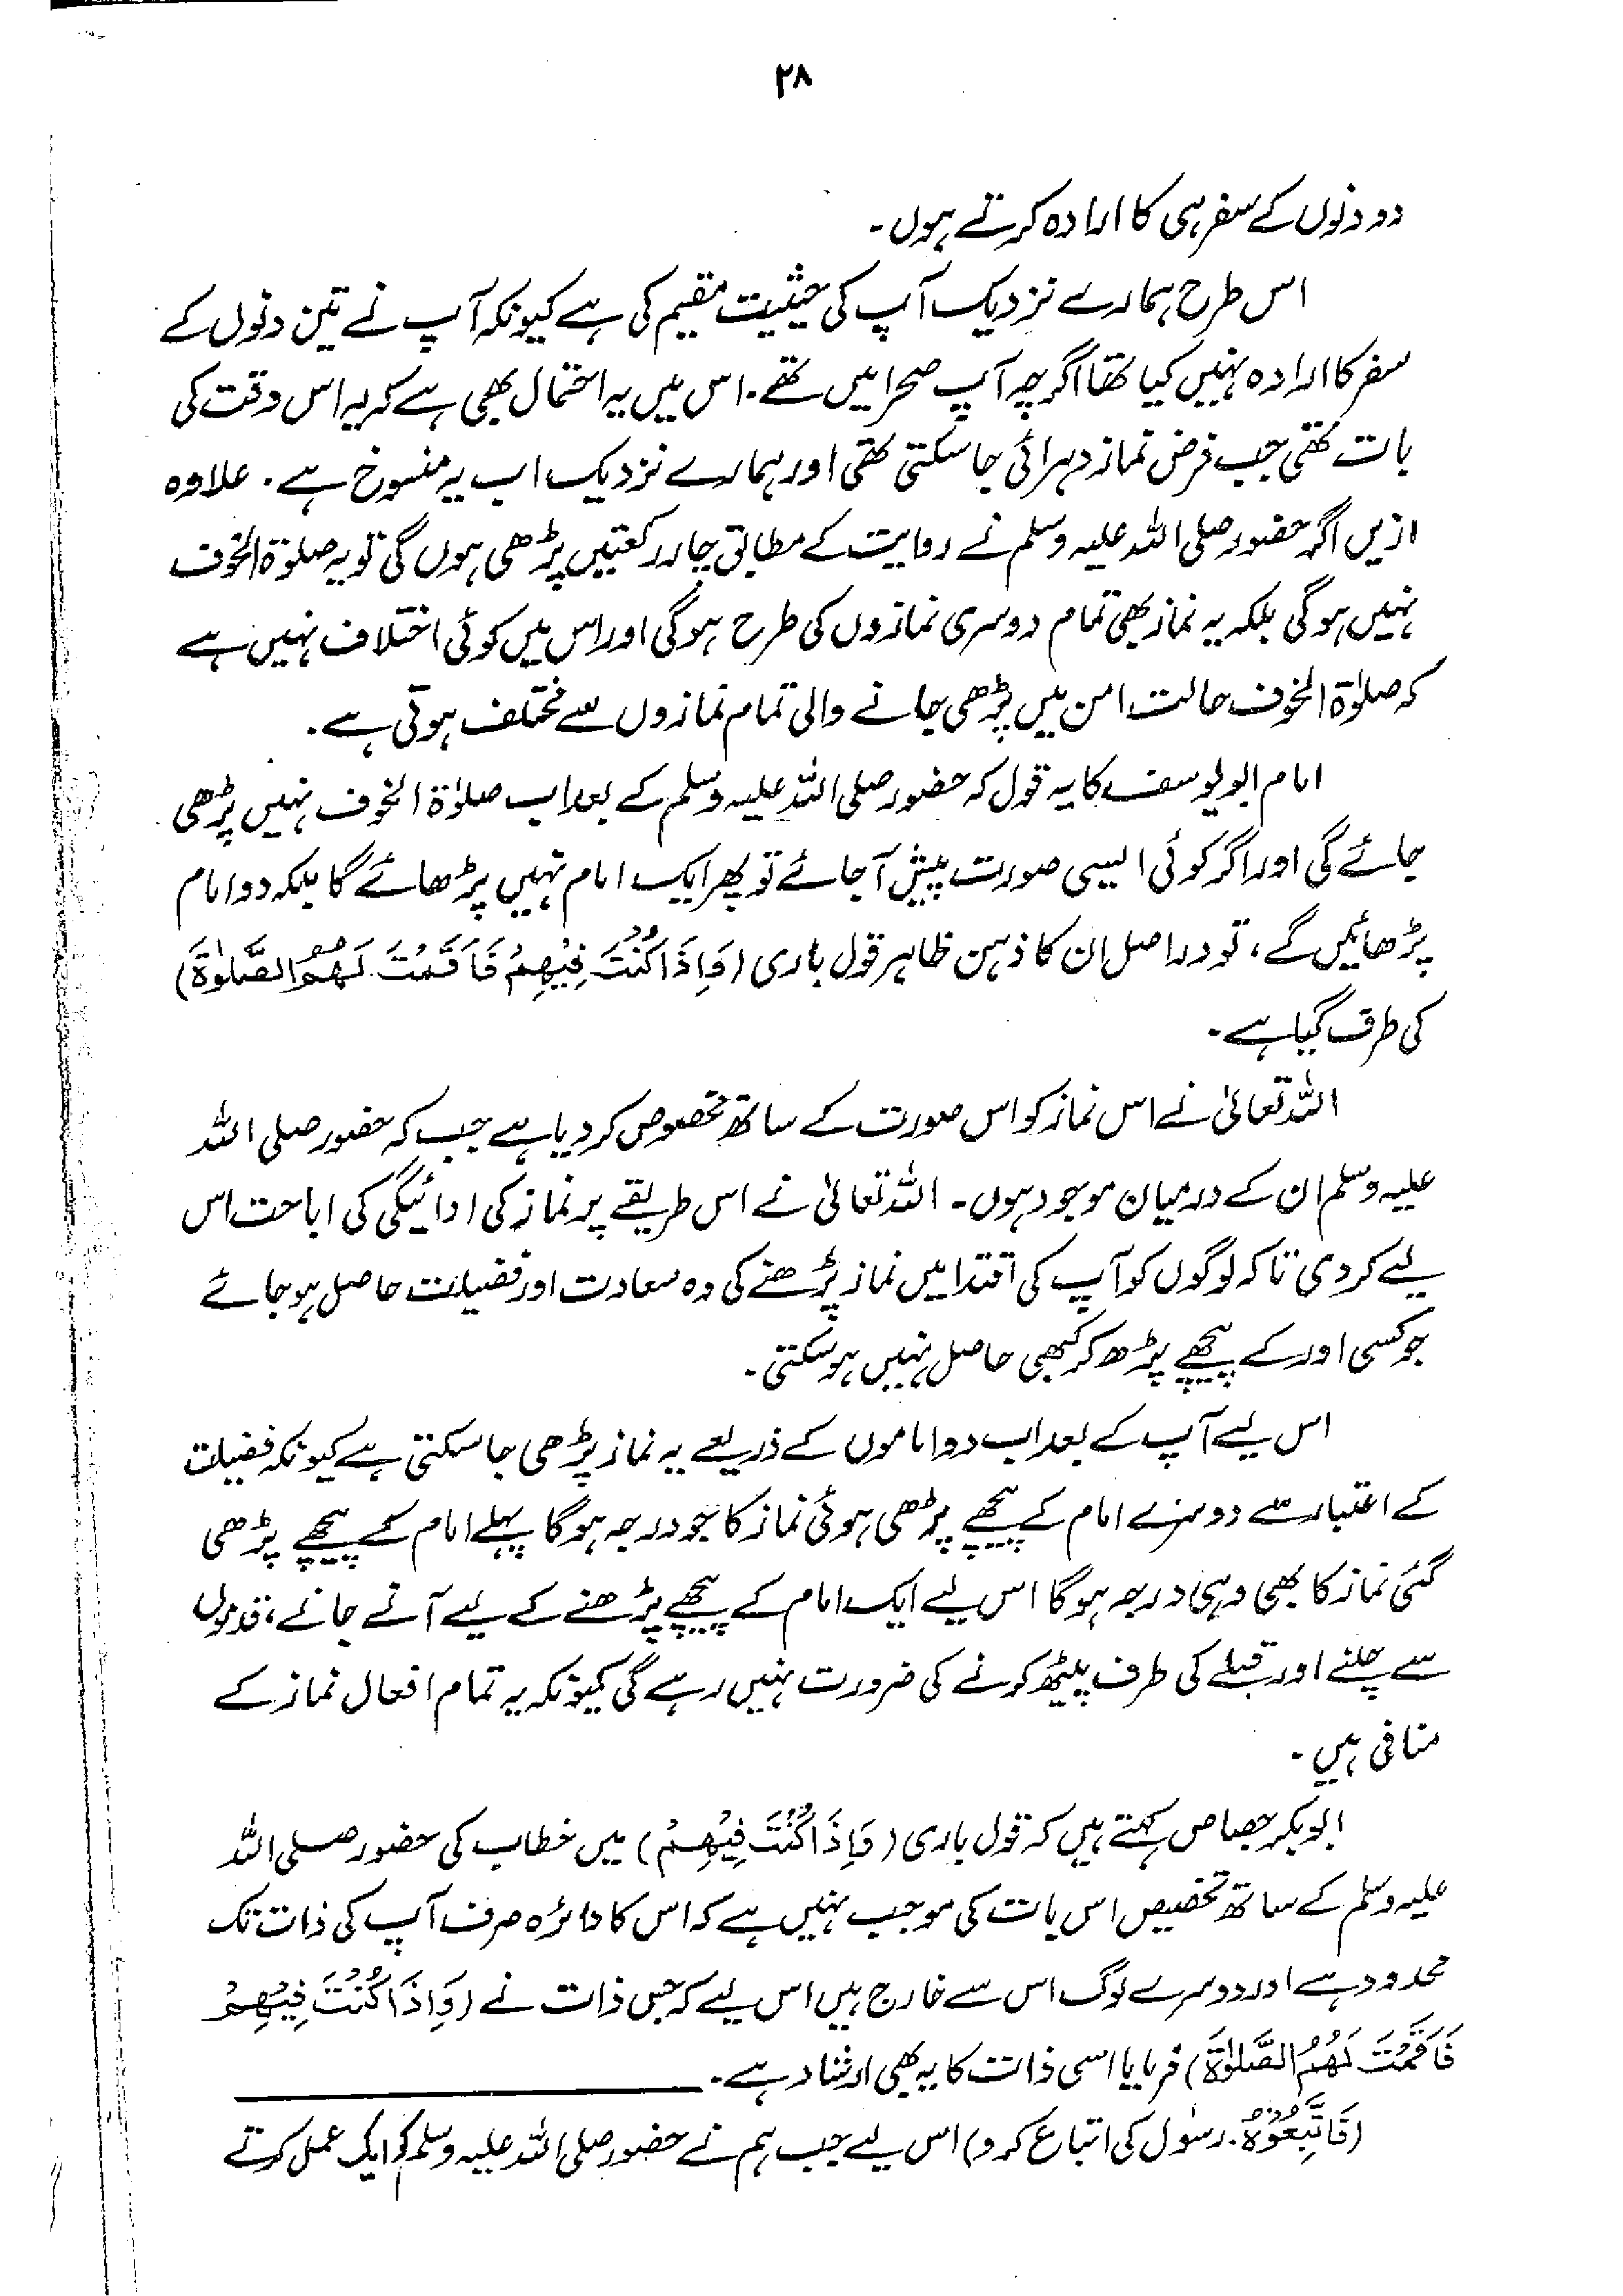 ۲۸
دو دنوں کے سفر ہی کا ارادہ کرتے ہوں۔
اس طرح ہمارے نزدیک آپ کی حیثیت مقیم کی ہے کیونکہ آپ نے تین دنوں کے
سفر کا ارادہ نہیں کیا تھا اگرچہ آپ صحرا میں تھے۔ اس میں یہ احتمال بھی ہے کہ یہ اس وقت کی
بات تھی جب فرض نماز دہرائی جا سکتی تھی اور ہمارے نزدیک اب یہ منسوخ ہے۔ علاوہ
ازیں اگر حضور صلی اللہ علیہ وسلم نے روایت کے مطابق چار رکعتیں پڑھی ہوں گی تو یہ صلوٰۃ الخوف
نہیں ہوگی بلکہ یہ نماز بھی تمام دوسری نمازوں کی طرح ہوگی اور اس میں کوئی اختلاف نہیں ہے
کہ صلوٰۃ الخوف حالت امن میں پڑھی جانے والی تمام نمازوں سے مختلف ہوتی ہے۔
امام ابو یوسف کا یہ قول کہ حضور صلی اللہ علیہ وسلم کے بعد اب صلوٰۃ الخوف نہیں پڑھی
جائے گی اور اگر کوئی ایسی صورت پیش آ جائے تو پھر ایک امام نہیں پڑھائے گا بلکہ دو امام
پڑھائیں گے، تو دراصل ان کا ذہن ظاہر قول باری (وَاِذَا كُنْتَ فِيْهِمْ فَاَقَمْتَ لَهُمُ الصَّلٰوةَ)
کی طرف گیا ہے۔
اللہ تعالیٰ نے اس نماز کو اس صورت کے ساتھ مخصوص کر دیا ہے جب کہ حضور صلی اللہ
علیہ وسلم ان کے درمیان موجود ہوں۔ اللہ تعالیٰ نے اس طریقے پر نماز کی ادائیگی کی اباحت اس
لیے کر دی تاکہ لوگوں کو آپ کی اقتدا میں نماز پڑھنے کی وہ سعادت اور فضیلت حاصل ہو جائے
جو کسی اور کے پیچھے پڑھ کر کبھی حاصل نہیں ہو سکتی۔
اس لیے آپ کے بعد اب دو اماموں کے ذریعے یہ نماز پڑھی جا سکتی ہے کیونکہ فضیلت
کے اعتبار سے دوسرے امام کے پیچھے پڑھی ہوئی نماز کا جو درجہ ہوگا پہلے امام کے پیچھے پڑھی
گئی نماز کا بھی وہی درجہ ہوگا اس لیے ایک امام کے پیچھے پڑھنے کے لیے آنے جانے، قدموں
سے چلنے اور قبلے کی طرف پیٹھ کرنے کی ضرورت نہیں رہے گی کیونکہ یہ تمام افعال نماز کے
منافی ہیں۔
ابو بکر جصاص کہتے ہیں کہ قول باری (وَاِذَا كُنْتَ فِيْهِمْ) میں خطاب کی حضور صلی اللہ
علیہ وسلم کے ساتھ تخصیص اس بات کی موجب نہیں ہے کہ اس کا دائرہ صرف آپ کی ذات تک
محدود ہے اور دوسرے لوگ اس سے خارج ہیں اس لیے کہ جس ذات نے (وَاِذَا كُنْتَ فِيْهِمْ
فَاَقَمْتَ لَهُمُ الصَّلٰوةَ) فرمایا اسی ذات کا یہ بھی ارشاد ہے۔
(فَاتَّبِعُوْهُ۔ رسول کی اتباع کرو) اس لیے جب ہم نے حضور صلی اللہ علیہ وسلم کو ایک عمل کرتے